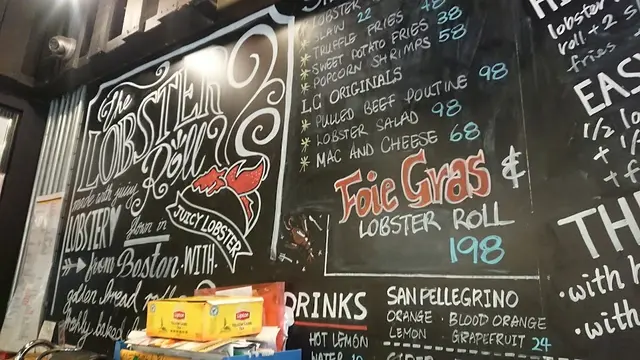 The
LOBSTER
Roll
made with juicy
LOBSTER
flown in
from Boston WITH
golden bread
freshly baked
JUICY LOBSTER
LOBSTER
SLAW 22
TRUFFLE FRIES 48
SWEET POTATO FRIES 38
POPCORN SHRIMPS 58
L.C ORIGINALS
PULLED BEEF POUTINE 98
LOBSTER SALAD 98
MAC AND CHEESE 68
Foie Gras &
LOBSTER ROLL
198
DRINKS
HOT LEMON
WATER
SAN PELLEGRINO
ORANGE · BLOOD ORANGE
LEMON · GRAPEFRUIT 24
lobster
roll + 2 s
fries
EAS
1/2 lo
+ 1/
+ f
TH
· with h
· with
Lipton
Lipton